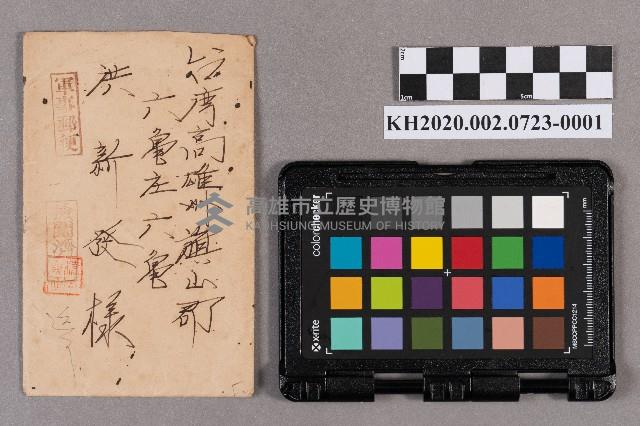 台湾高雄州旗山郡
六亀庄六亀
洪新發様
軍事郵便
濟
KH2020.002.0723-0001
1cm
5cm
高雄市立歷史博物館
KAOHSIUNG MUSEUM OF HISTORY
colorchecker
x-rite
mm
MSCCPPCC1214